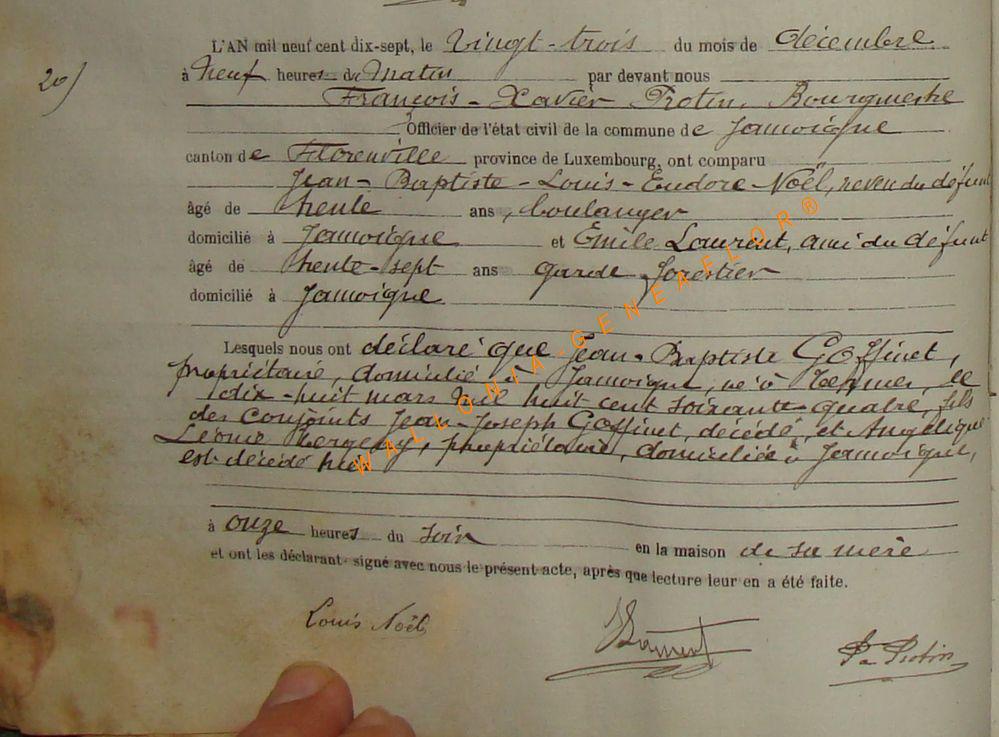 20)
L'AN mil neuf cent dix-sept, le Vingt-trois du mois de décembre
à Neuf heures du Matin par devant nous
François-Xavier Protin, Bourgmestre
Officier de l'état civil de la commune de Jamoigne
canton de Florenville province de Luxembourg, ont comparu
Jean-Baptiste-Louis-Eudore Noël, neveu du défunt
âgé de trente ans, boulanger
domicilié à Jamoigne et Emile Laurent, ami du défunt
âgé de trente-sept ans garde forestier
domicilié à Jamoigne
Lesquels nous ont déclaré que Jean-Baptiste Goffinet,
propriétaire, domicilié à Jamoigne, né à Termes, le
dix-huit mars mil huit cent soixante-quatre, fils
des conjoints Jean-Joseph Goffinet, décédé, et Angélique
Léonie, propriétaire, domiciliée à Jamoigne,
est décédé hier
à onze heures du soir en la maison de sa mère
et ont les déclarant signé avec nous le présent acte, après que lecture leur en a été faite.
Louis Noël
Laurent
Protin
WALLONIA-GENEAFLOR®